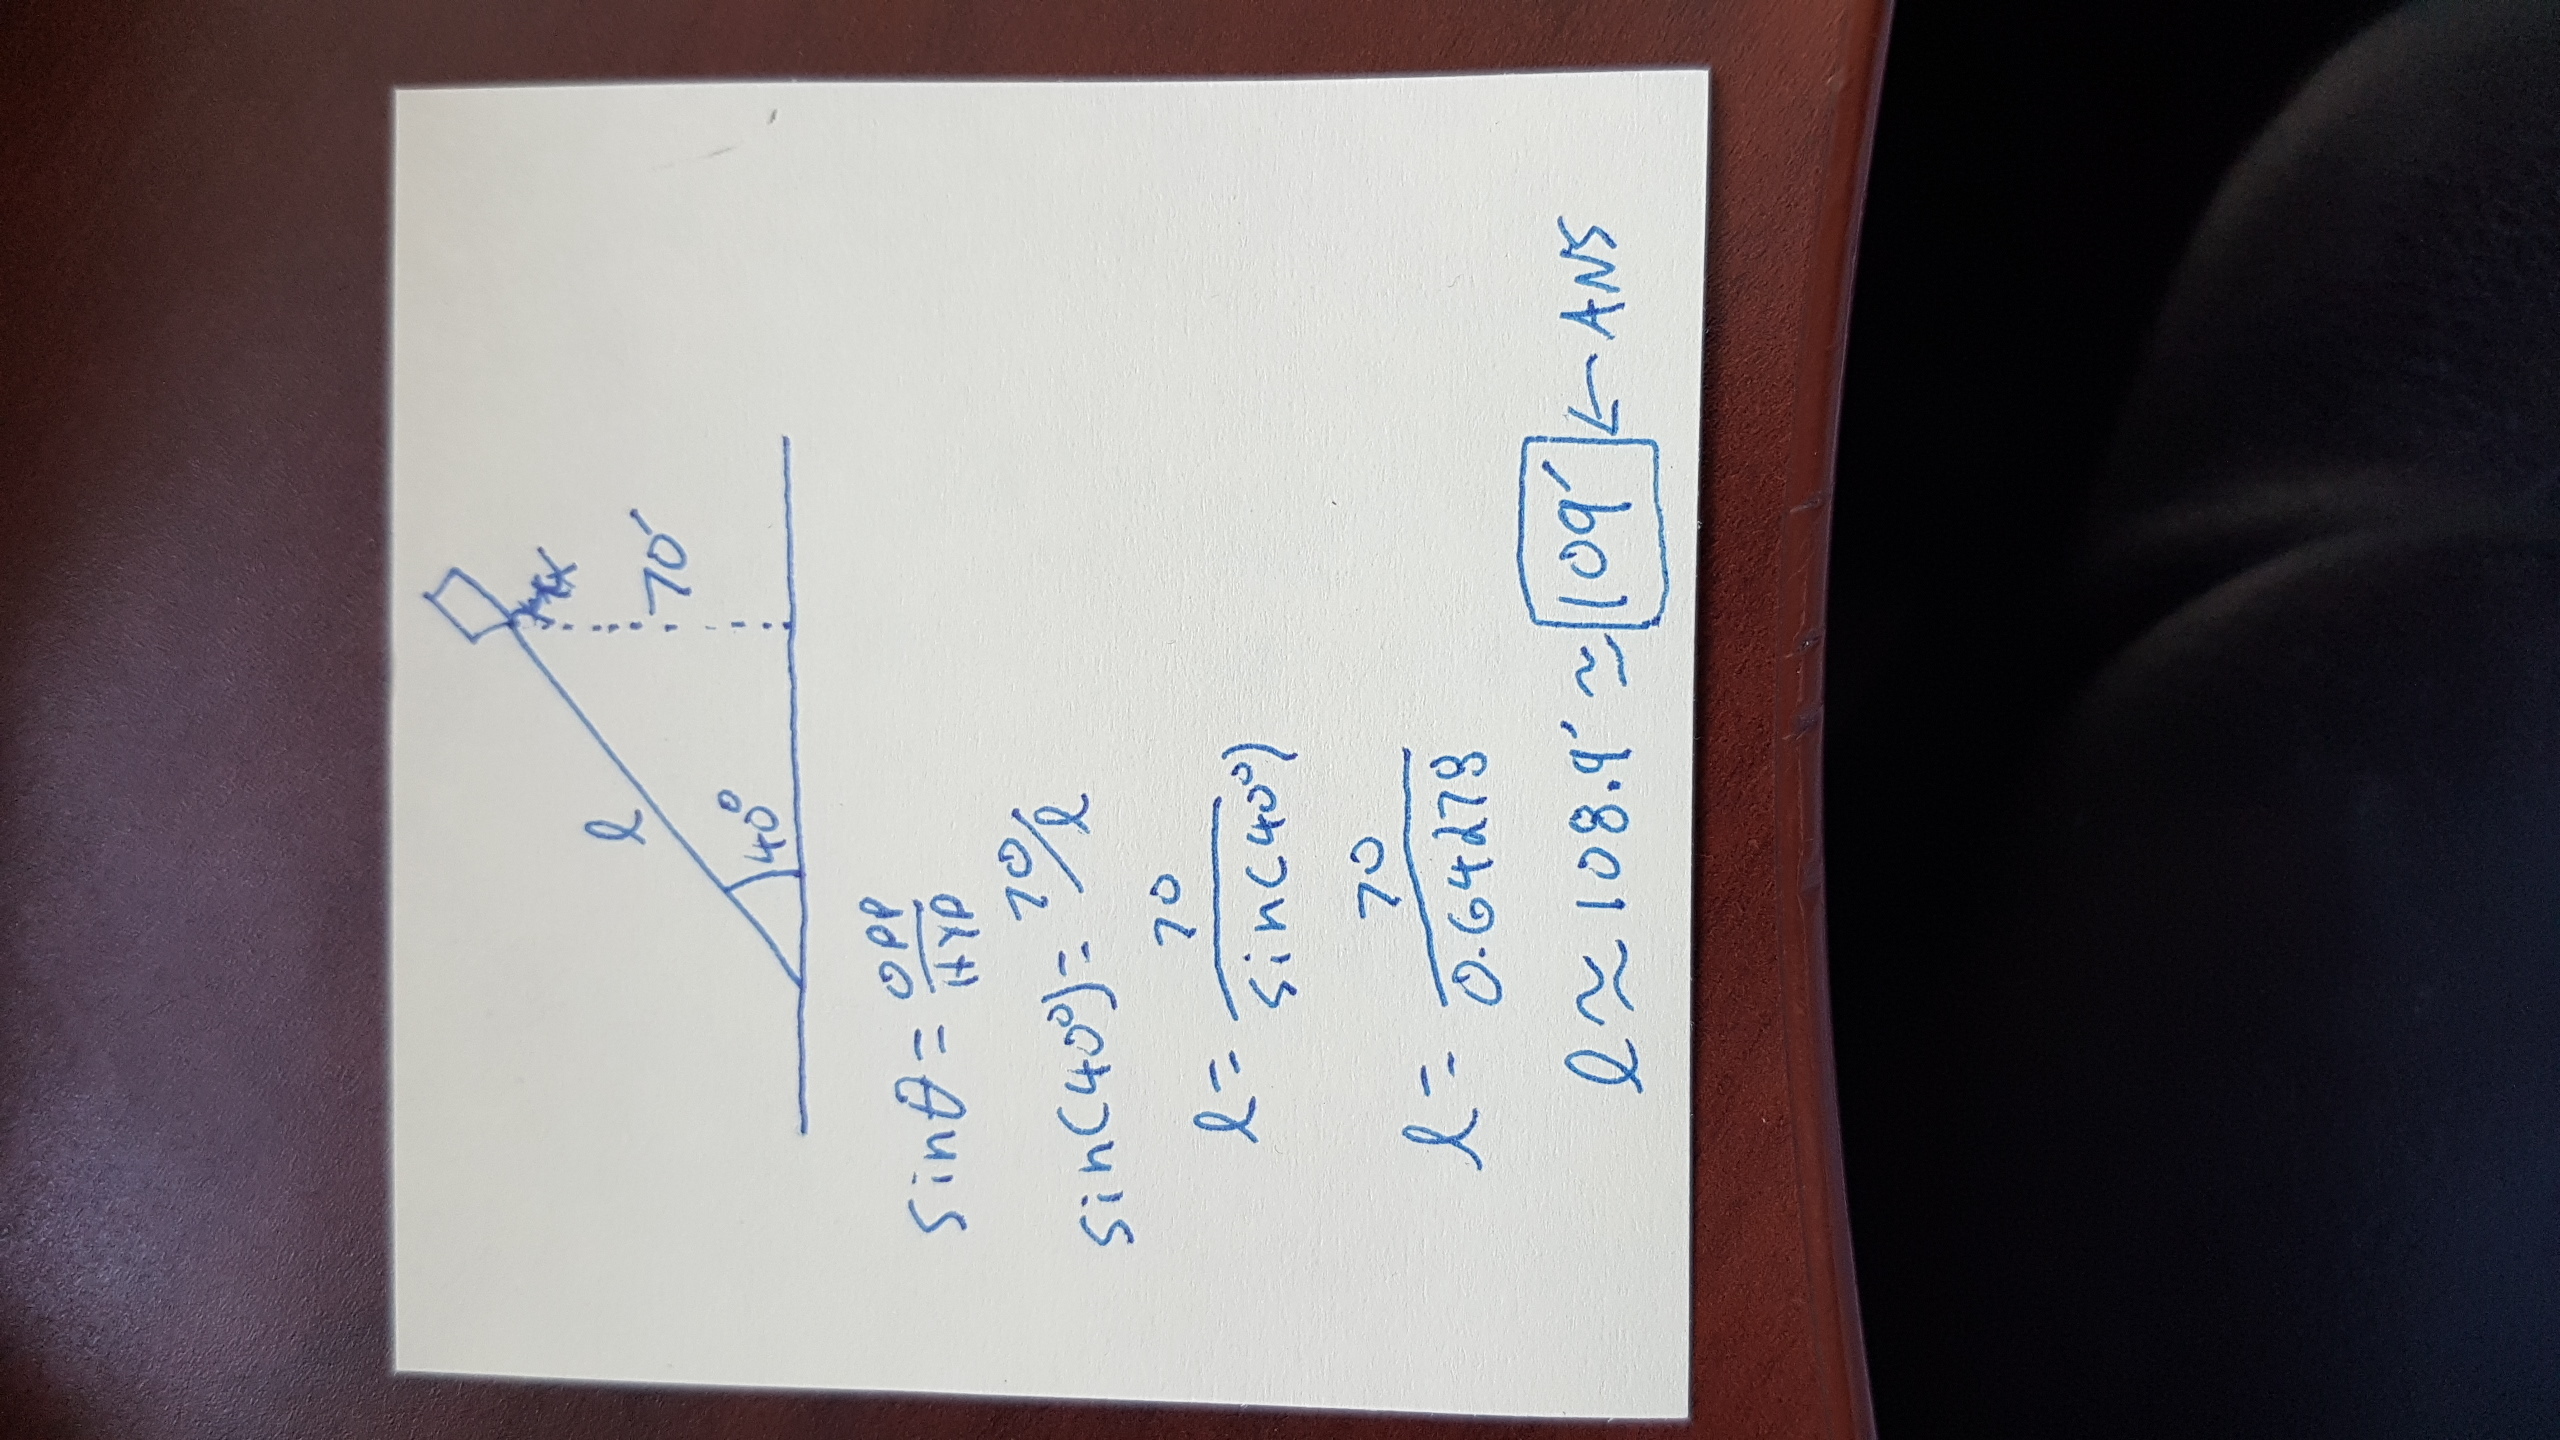 l
70'
40°
sinθ = OPP/HYP
sin(40°) = 70/l
l = 70/sin(40°)
l = 70/0.64278
l ≈ 108.9' ≈ 109' ← ANS